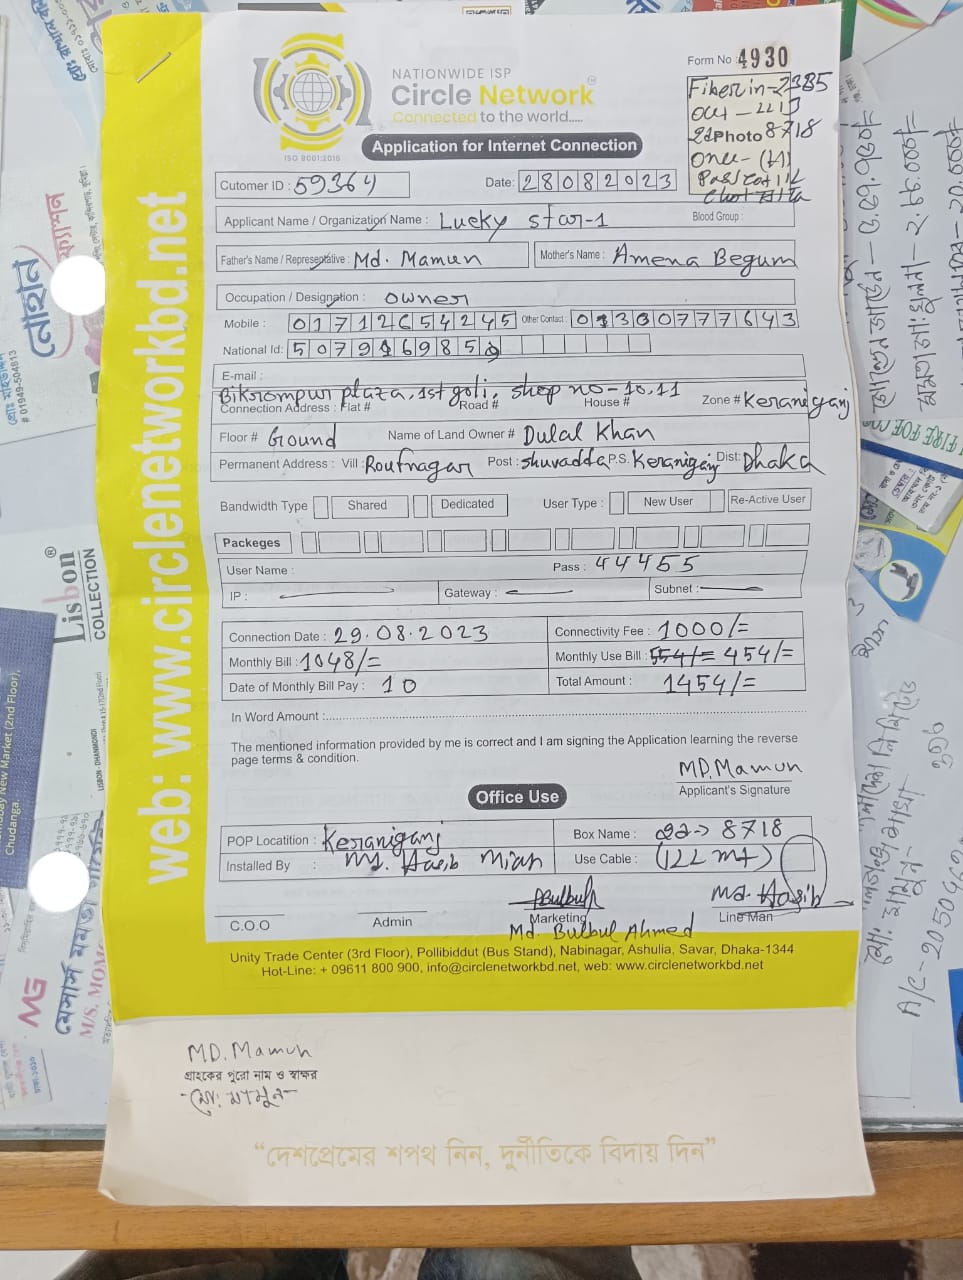 NATIONWIDE ISP
Circle Network
Connected to the world.....
ISO 9001:2015
Form No : 4930
Fiber in = 2385
out - 2213
Photo 8718
Onu - (H)
Application for Internet Connection
Cutomer ID : 59364
Date: 28082023
Applicant Name / Organization Name : Lucky star-1
Blood Group :
Father's Name / Representative : Md. Mamun
Mother's Name : Amena Begum
Occupation / Designation : owner
Mobile : 01712654245 Other Contact : 01300777643
National Id: 5079169859
E-mail :
Bikrompur plaza, 1st goli, shop no - 10,11
Connection Address : Flat # Road # House # Zone # Keraniganj
Floor # Ground Name of Land Owner # Dulal Khan
Permanent Address : Vill : Roufnagar Post : Shuvadda P.S. Keraniganj Dist: Dhaka
Bandwidth Type Shared Dedicated User Type : New User Re-Active User
Packeges
User Name : Pass : 44455
IP : Gateway : Subnet :
Connection Date : 29.08.2023 Connectivity Fee : 1000/=
Monthly Bill : 1048/= Monthly Use Bill : 554/= 454/=
Date of Monthly Bill Pay : 10 Total Amount : 1454/=
In Word Amount :
The mentioned information provided by me is correct and I am signing the Application learning the reverse
page terms & condition.
MD. Mamun
Applicant's Signature
Office Use
POP Locatition : Keraniganj Box Name : 8718
Installed By : Md. Hasib Mian Use Cable : (122 mt)
Bulbul Md. Hasib
C.O.O Admin Marketing Line Man
Md. Bulbul Ahmed
Unity Trade Center (3rd Floor), Pollibiddut (Bus Stand), Nabinagar, Ashulia, Savar, Dhaka-1344
Hot-Line: + 09611 800 900, info@circlenetworkbd.net, web: www.circlenetworkbd.net
web: www.circlenetworkbd.net
MD. Mamun
গ্রাহকের পুরো নাম ও স্বাক্ষর
মো: মামুন
“দেশপ্রেমের শপথ নিন, দুর্নীতিকে বিদায় দিন”
নোহান
ফ্যাশন
# 01949-504613
Lisbon®
COLLECTION
New Market (2nd Floor),
Chudanga.
মেসার্স মমতা
M/S. MOM